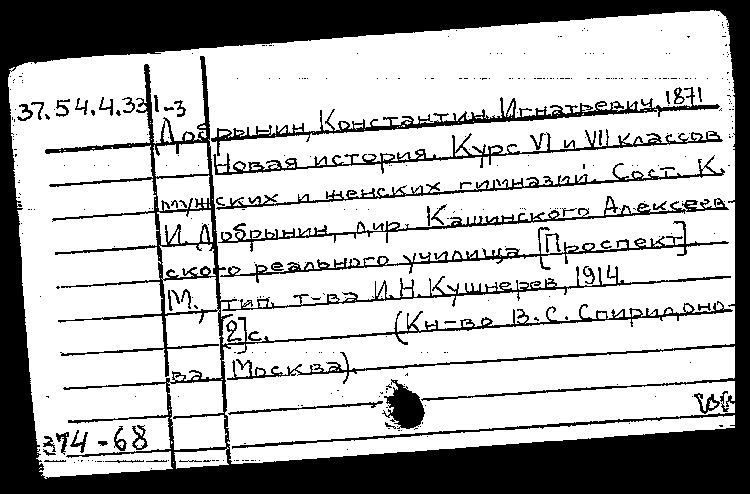 37.54.4.33 1-3
Добрынин, Константин Игнатьевич, 1871
Новая история. Курс VI и VII классов
мужских и женских гимназий. Сост. К.
И. Добрынин, дир. Кашинского Алексеев-
ского реального училища. [Проспект].
М., тип. т-ва И.Н. Кушнерев, 1914.
[2] с. (Кн-во В.С. Спиридоно-
ва. Москва).
374-68